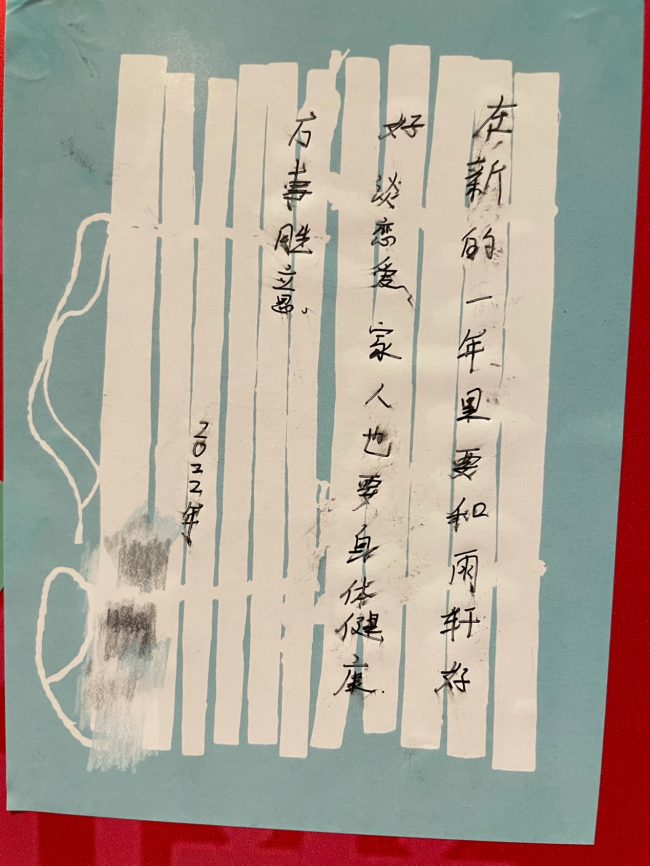 在新的一年里要和雨轩好
好谈恋爱、家人也要身体健康.
万事胜意。
2022年